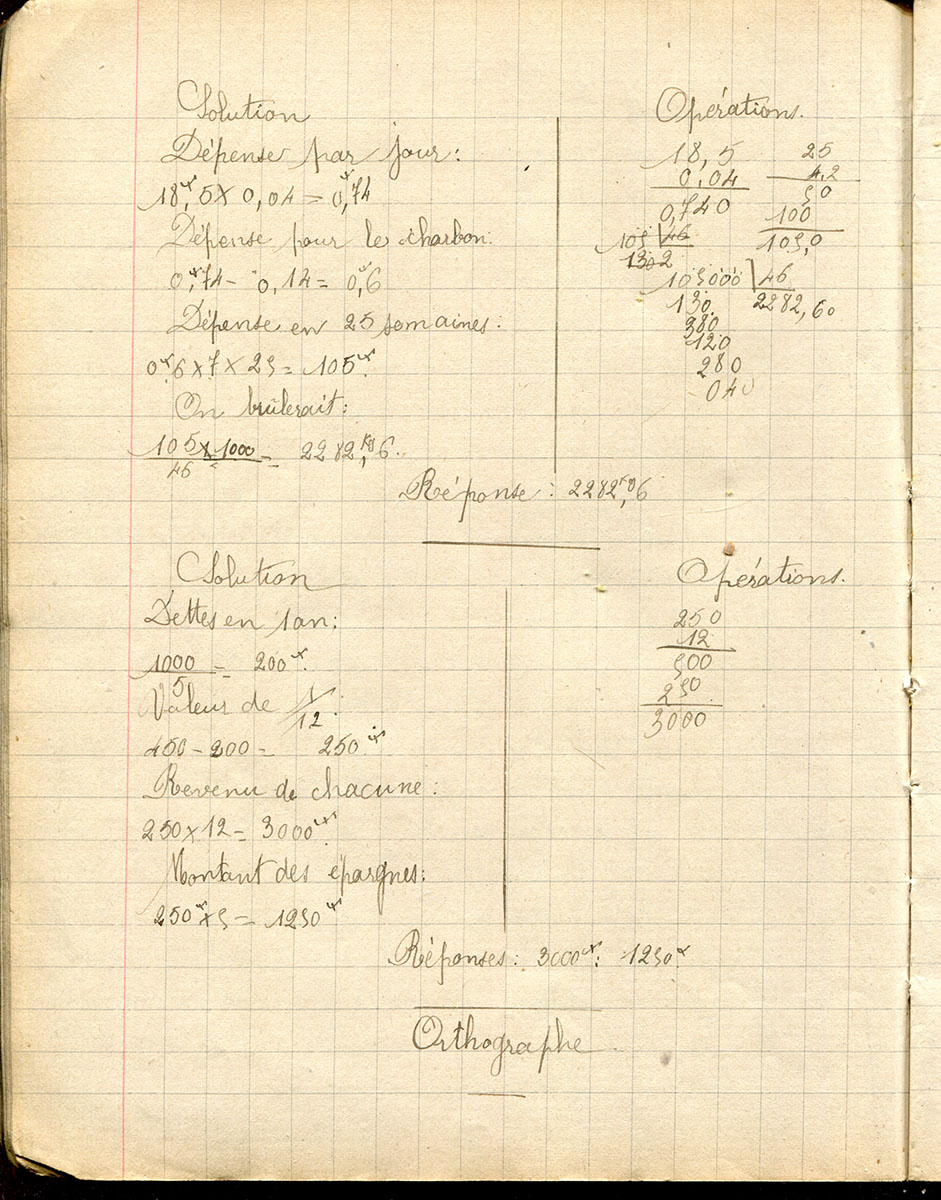 Solution
Dépense par jour:
18fr,5 x 0,04 = 0fr,74
Dépense pour le charbon:
0fr,74 - 0,14 = 0fr,6
Dépense en 25 semaines:
0fr,6 x 7 x 25 = 105fr.
On brûlerait:
105 x 1000
46
= 2282Kg,6.
Opérations.
18,5
0,04
0,740
25
4,2
50
100
105,0
105 46
130 2
105000 46
130 2282,60
380
120
280
040
Réponse: 2282Kg,6
Solution
Dettes en 1 an:
1000
5
= 200fr.
Valeur de 1/12:
450 - 200 = 250fr.
Revenu de chacune:
250 x 12 = 3000fr
Montant des épargnes:
250fr x 5 = 1250fr
Opérations.
250
12
500
250
3000
Réponses: 3000fr; 1250fr.
Orthographe